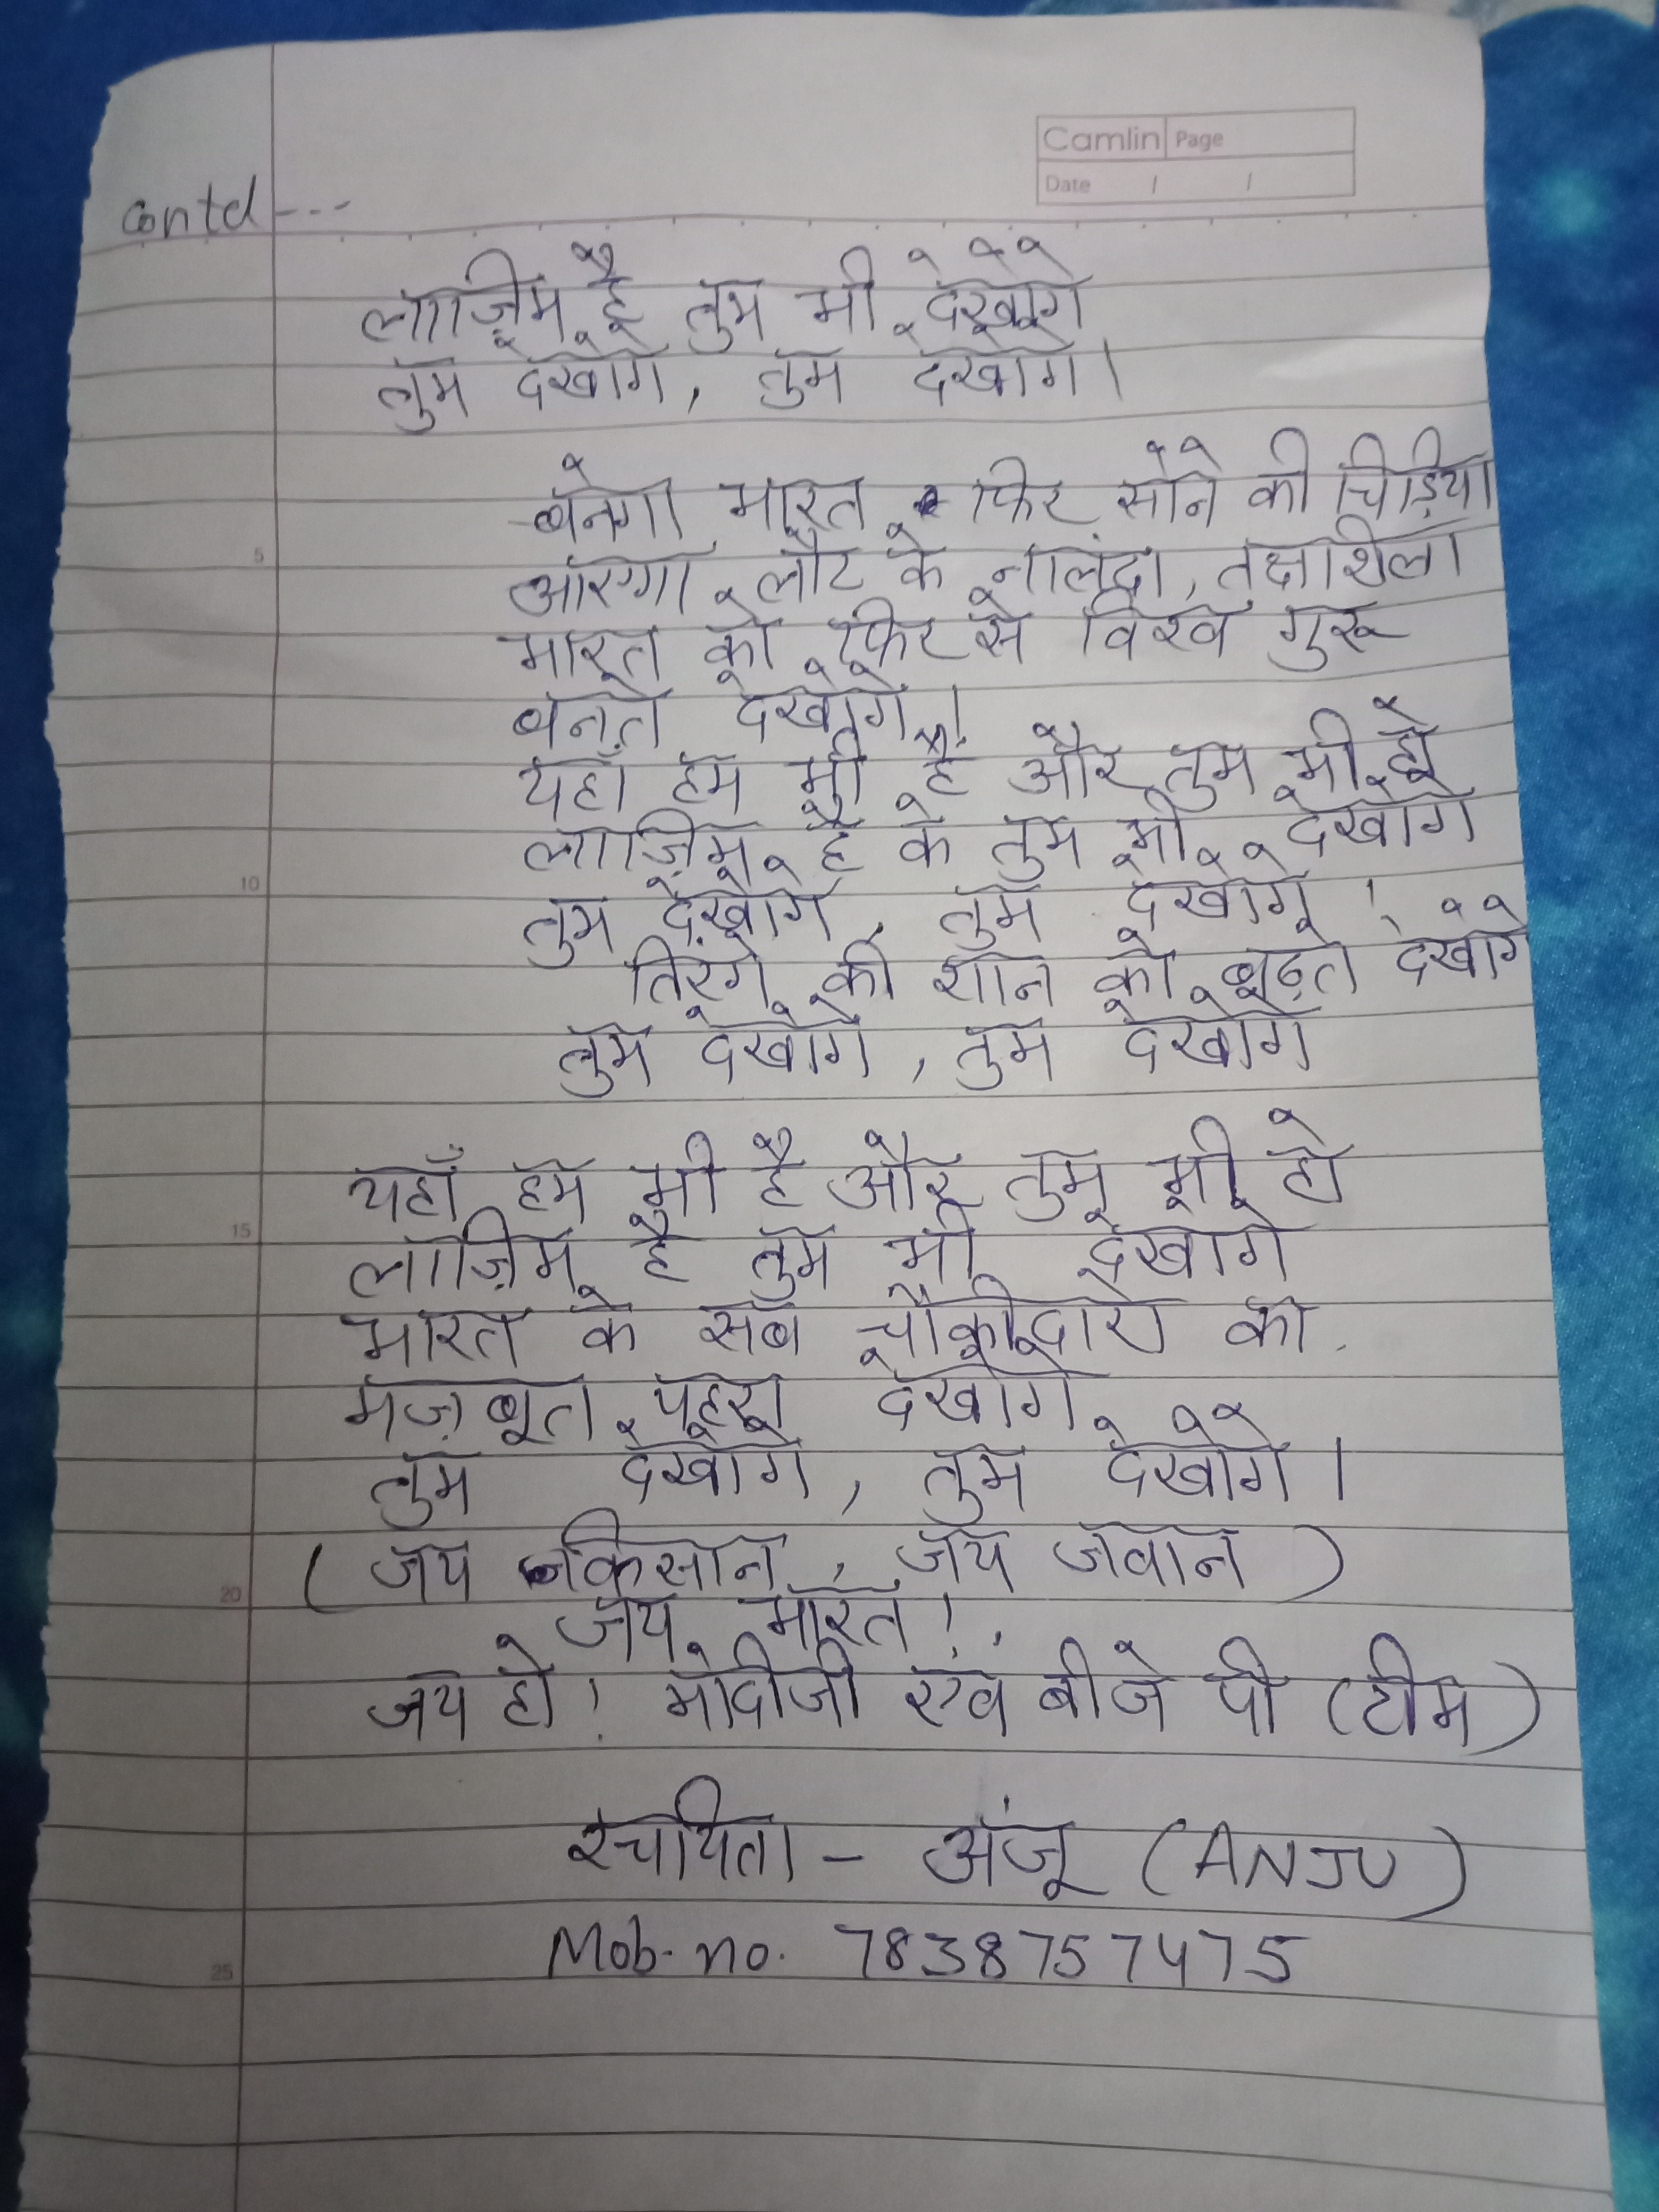 Camlin Page
Date / /
contd ---
लाज़िम है तुम भी देखोगे
तुम देखोगे, तुम देखोगे।
बनेगा भारत फिर सोने की चिड़िया
आएगा लौट के नालंदा, तक्षशिला
भारत को फिर से विश्व गुरू
बनते देखोगे!
यहाँ हम भी हैं और तुम भी हो
लाज़िम है के तुम भी देखोगे
तुम देखोगे, तुम देखोगे!
तिरंगे की शान को बढ़ते देखोगे
तुम देखोगे, तुम देखोगे
यहाँ हम भी है और तुम भी हो
लाज़िम है तुम भी देखोगे
भारत के सब चौकीदारों का
मज़बूत पहरा देखोगे
तुम देखोगे, तुम देखोगे।
(जय किसान, जय जवान)
जय भारत!
जय हो! मोदीजी एवं बीजे पी (टीम)
रचयिता - अंजू (ANJU)
Mob. no. 7838757475
5
10
15
20
25